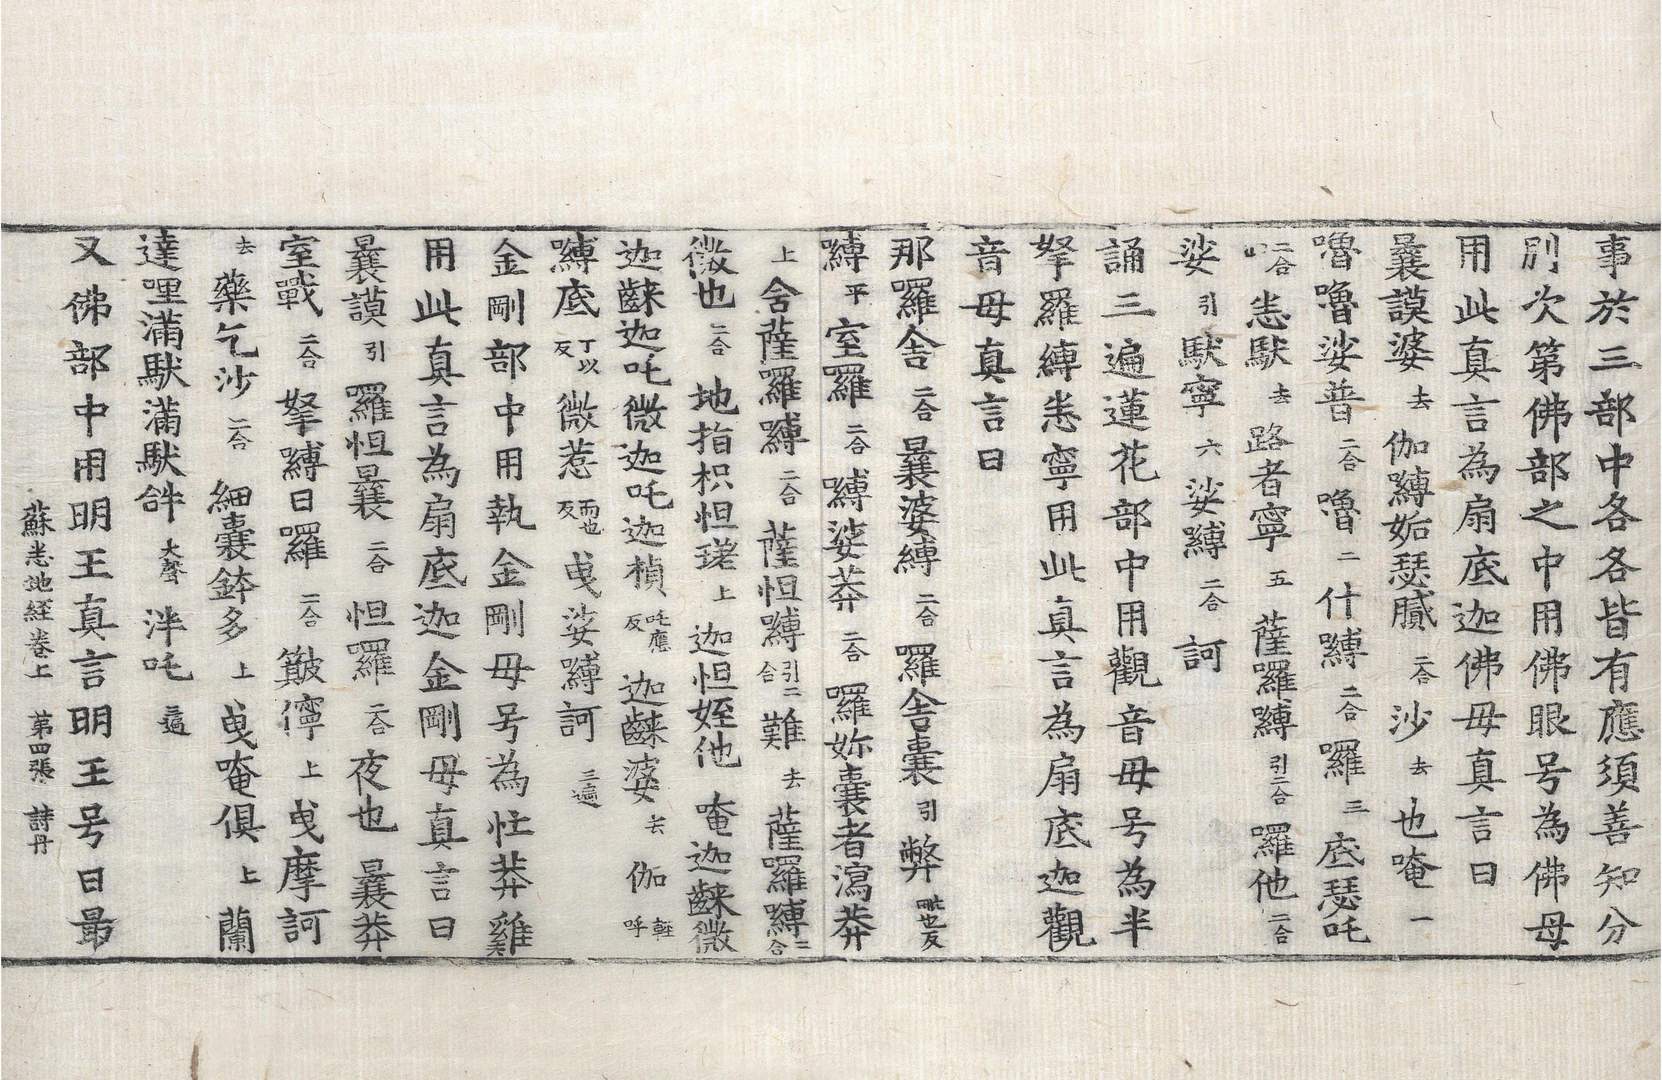 事於三部中各各皆有應須善知分
別次第佛部之中用佛眼号為佛母
用此真言為扇底迦佛母真言曰
曩謨婆去伽嚩姤瑟膩二合沙去也唵一
嚕嚕娑普二合嚕二什嚩二合囉三底瑟吒
二合此悉馱去路者寧五薩囉嚩引二合囉他二合
娑引馱寧六娑嚩二合訶
誦三遍蓮花部中用觀音母号為半
拏羅嚩悉寧用此真言為扇底迦觀
音母真言曰
那囉舍二合曩婆嚩二合羅舍囊引弊毗也反
嚩平室羅二合嚩娑莽二合囉妳囊者瀉莽
上舍薩羅嚩二合薩怛嚩引二合難去薩羅嚩二合
微也二合地指枳怛瑳上迦怛姪他唵迦䶛微
迦䶛迦吒微迦吒迦楨吒應反迦䶛婆去伽輕呼
嚩底丁以反微惹而也反曳娑嚩訶三遍
金剛部中用執金剛母号為忙莽雞
用此真言為扇底迦金剛母真言曰
曩謨引囉怛曩二合怛羅二合夜也曩莽
室戰二合拏嚩日囉二合簸儜上曳摩訶
去藥乞沙二合細囊鉢多上曳唵俱上蘭
達哩滿馱滿馱𤙖大聲泮吒三遍
又佛部中用明王真言明王号曰最
蘇悉地経卷上 第四張 詩丹